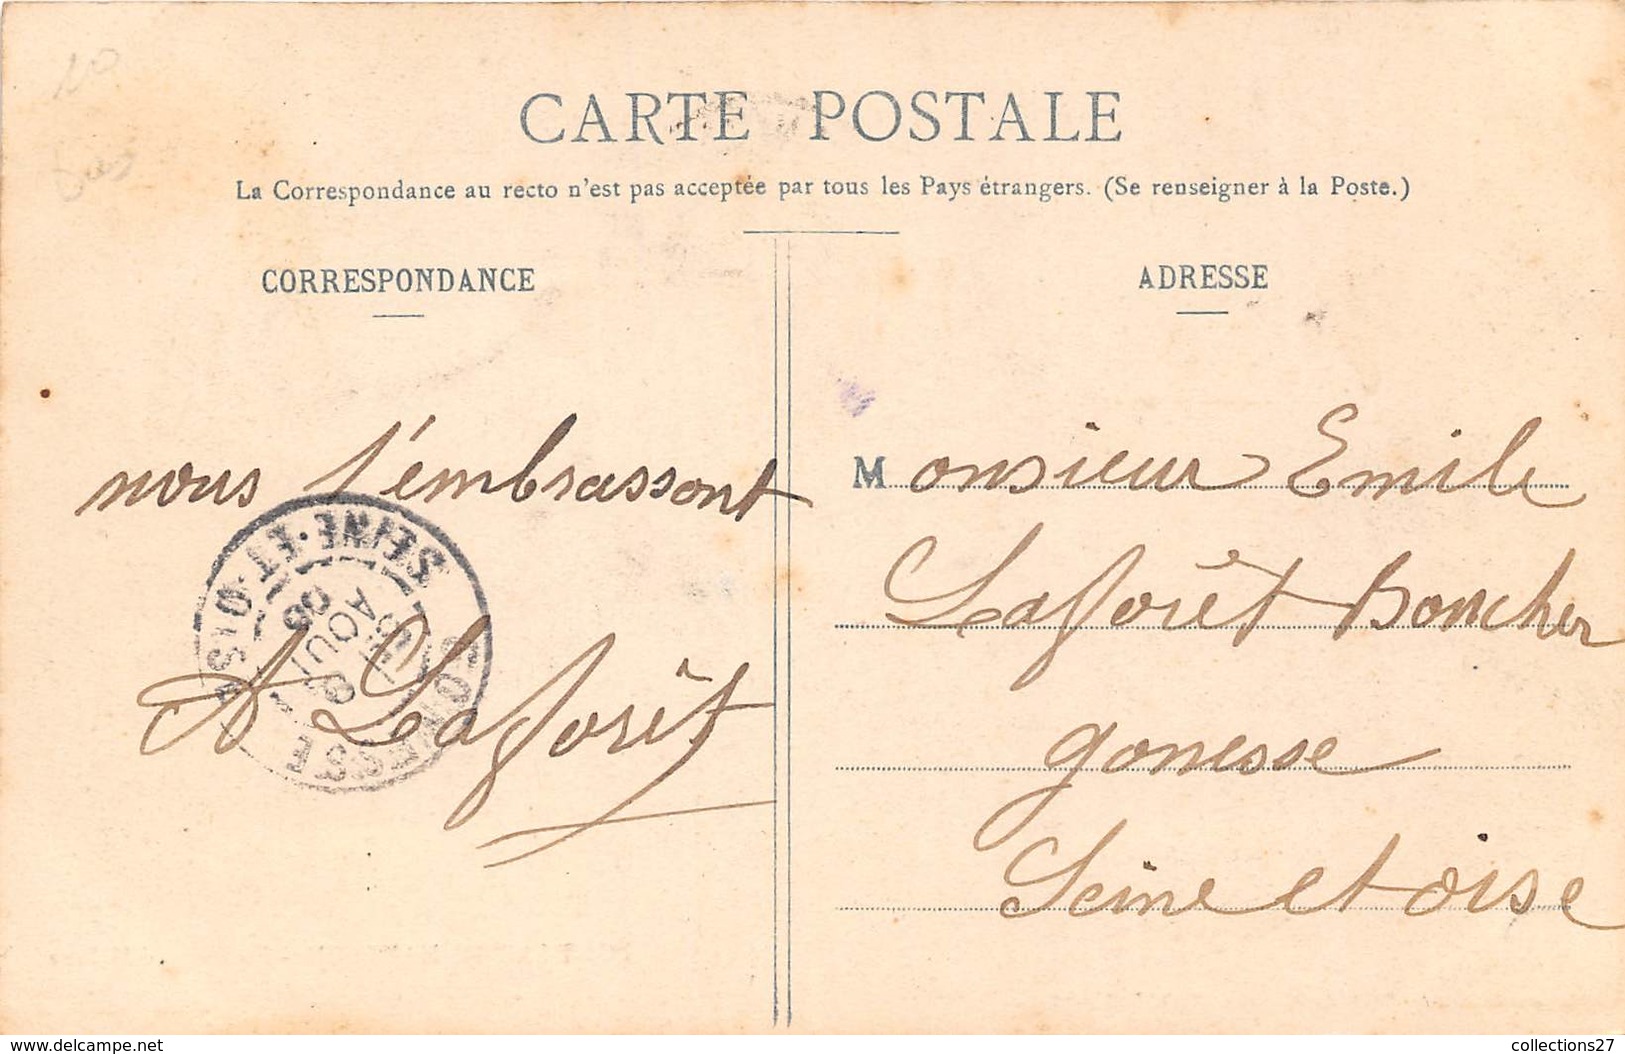 CARTE POSTALE
La Correspondance au recto n'est pas acceptée par tous les Pays étrangers. (Se renseigner à la Poste.)
CORRESPONDANCE
nous t'embrassont
A Laforêt
GONESSE
SEINE-ET-OISE
AOUT
ADRESSE
Monsieur Emile
Laforêt Boucher
gonesse
Seine et oise
www.delcampe.net
collections27